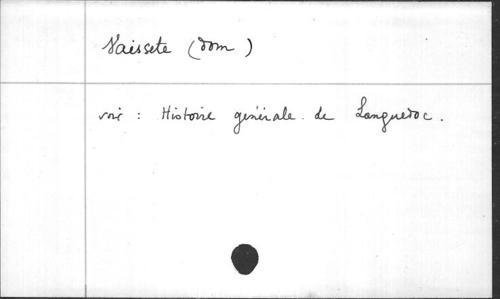 Vaissete (dom)
voir : Histoire générale de Languedoc.